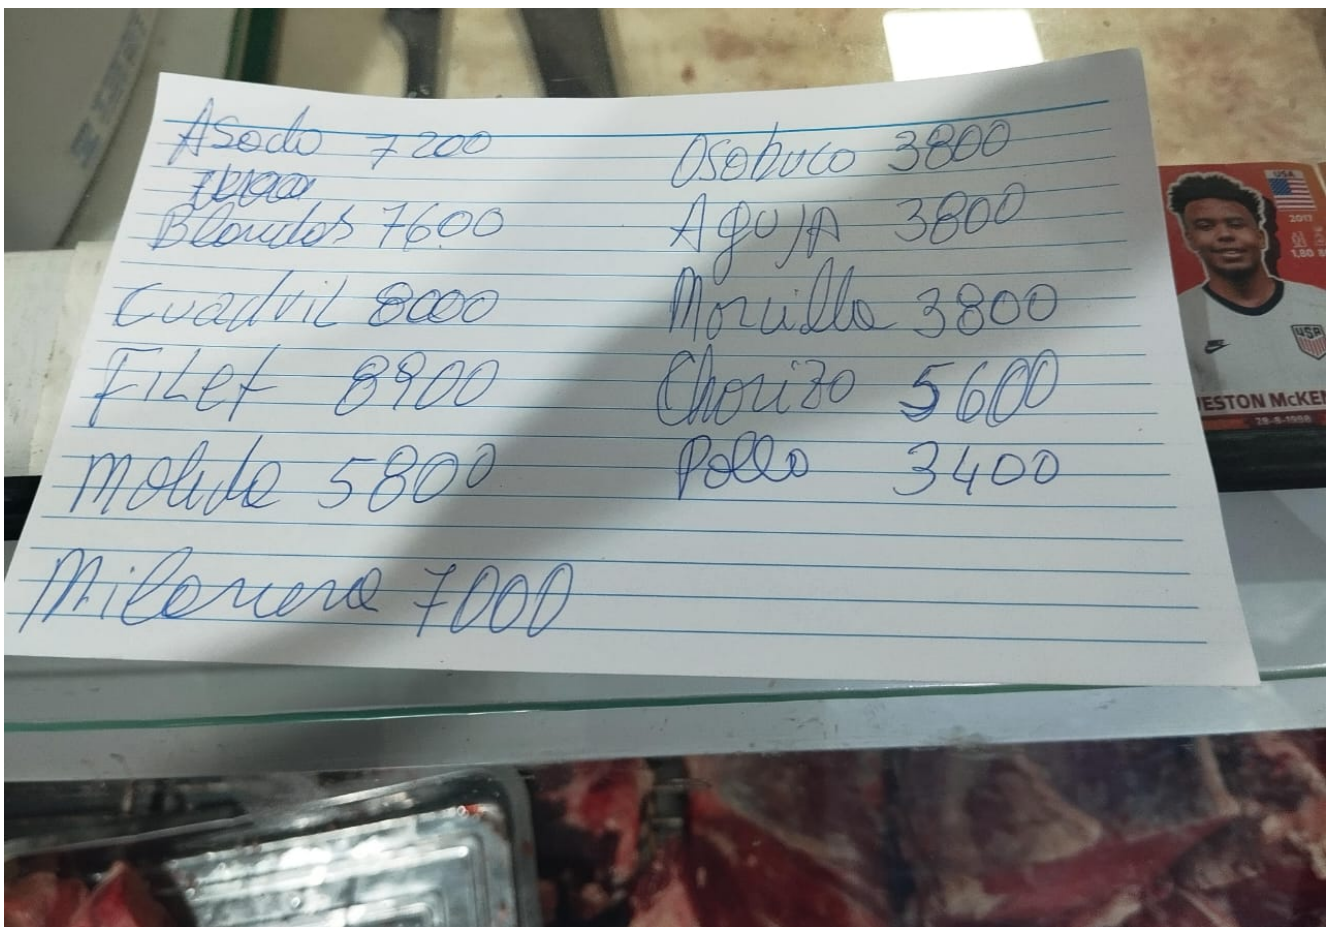 Asado 7200
Blandos 7600
Cuadril 8000
Filet 8900
Molida 5800
Milanera 7000
Osobuco 3800
AgujA 3800
Morcilla 3800
Chorizo 5600
Pollo 3400
USA
2017
1,80
USA
ESTON McKE
28-8-1998